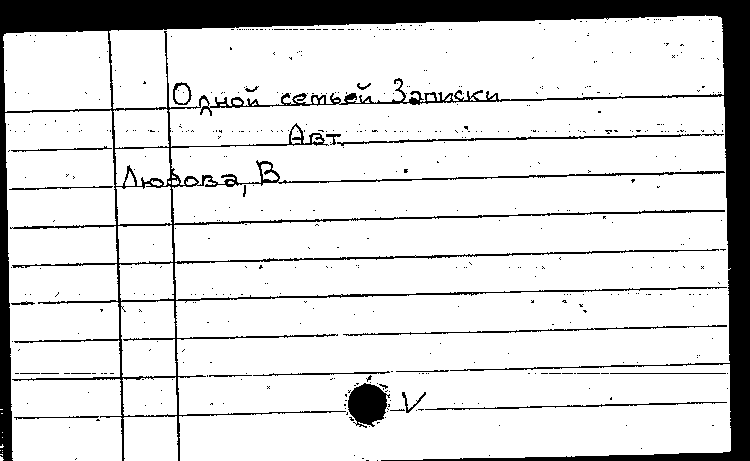 Одной семьей. Записки
Авт.
Людова, В.
V